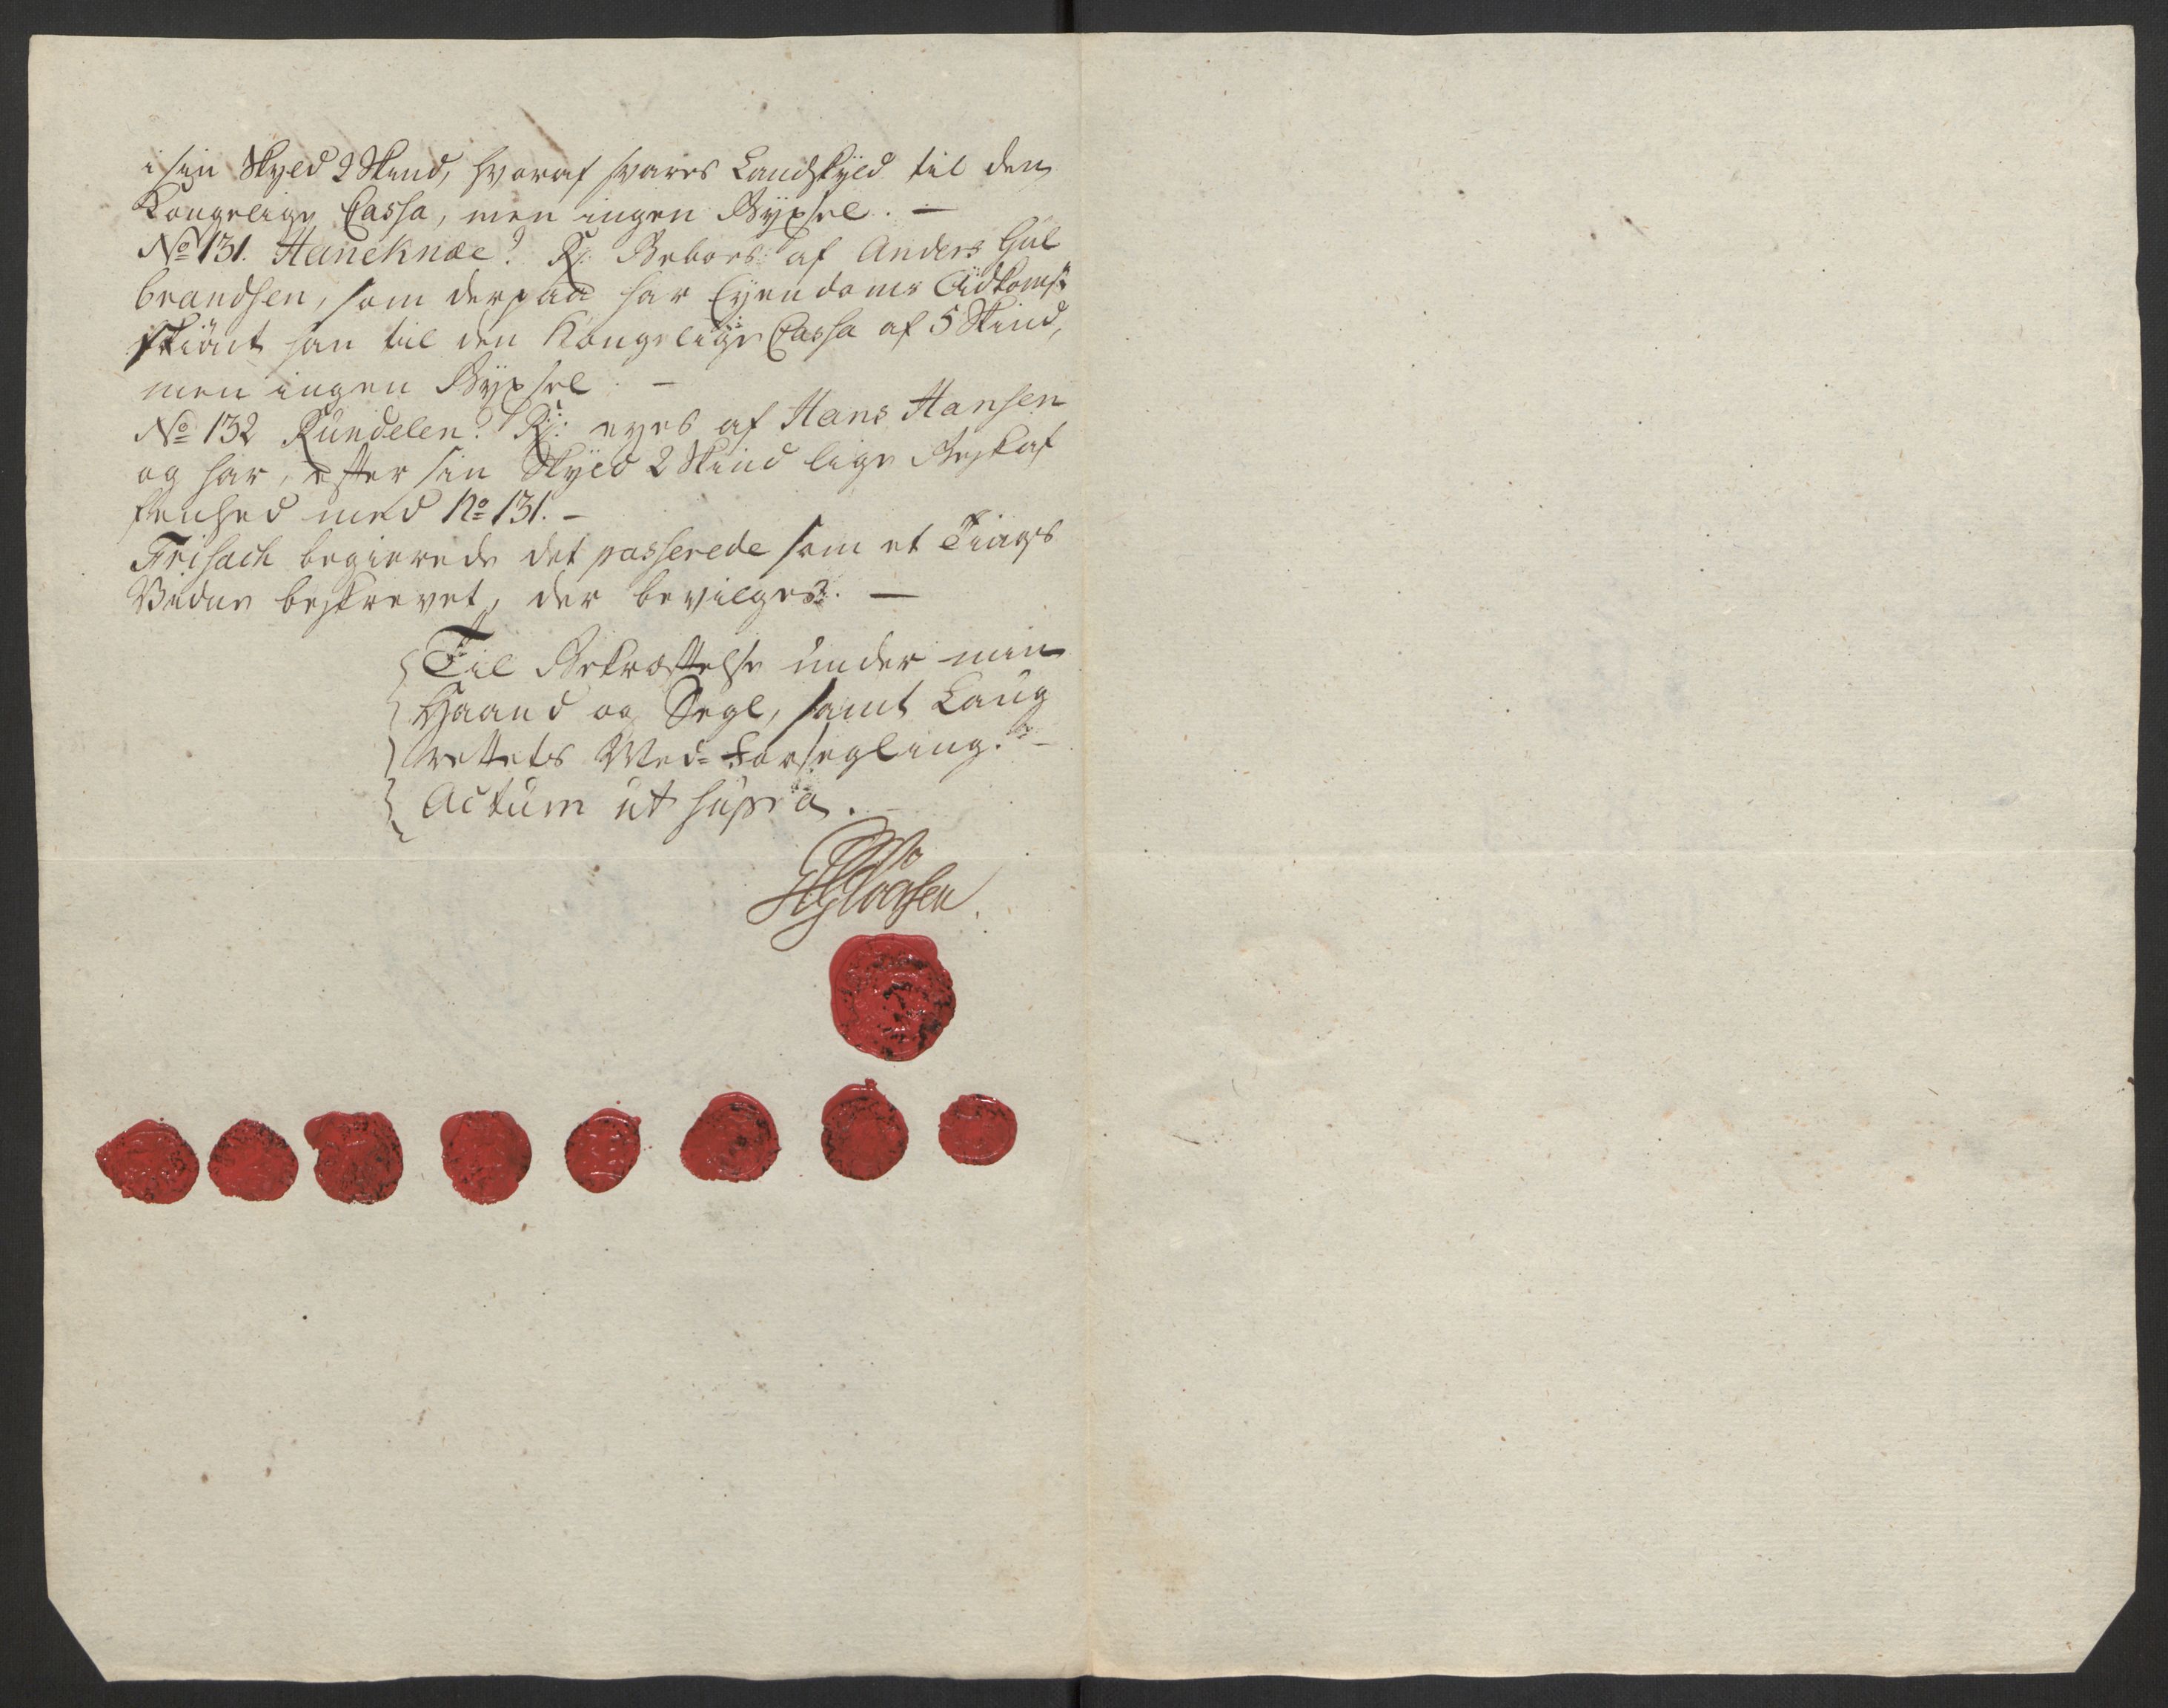 i sin Skyld 2 Skind, hvoraf svares Landskyld til den
Kongelige Cassa, men ingen Bÿxsel. —
No 131. Haneknæe? Rs: Beboes af Anders Gul
brandsen, som derpaa har Eyendoms Adkomst
skiönt han til den Kongelige Cassa af 5 Skind,
men ingen Bÿxsel. —
No 132 Rundelen? Rs: eyes af Hans Hansen
og har, efter sin Skyld 2 Skind lige Beskaf
fenhed med No 131. —
Frisach begierede det passerede som et Tings
Vidne beskrevet, der bevilges. —
Til Bekræftelse under min
Haand og Segl, samt Laug
rettets Med-Forsegling. —
Actum ut supra.